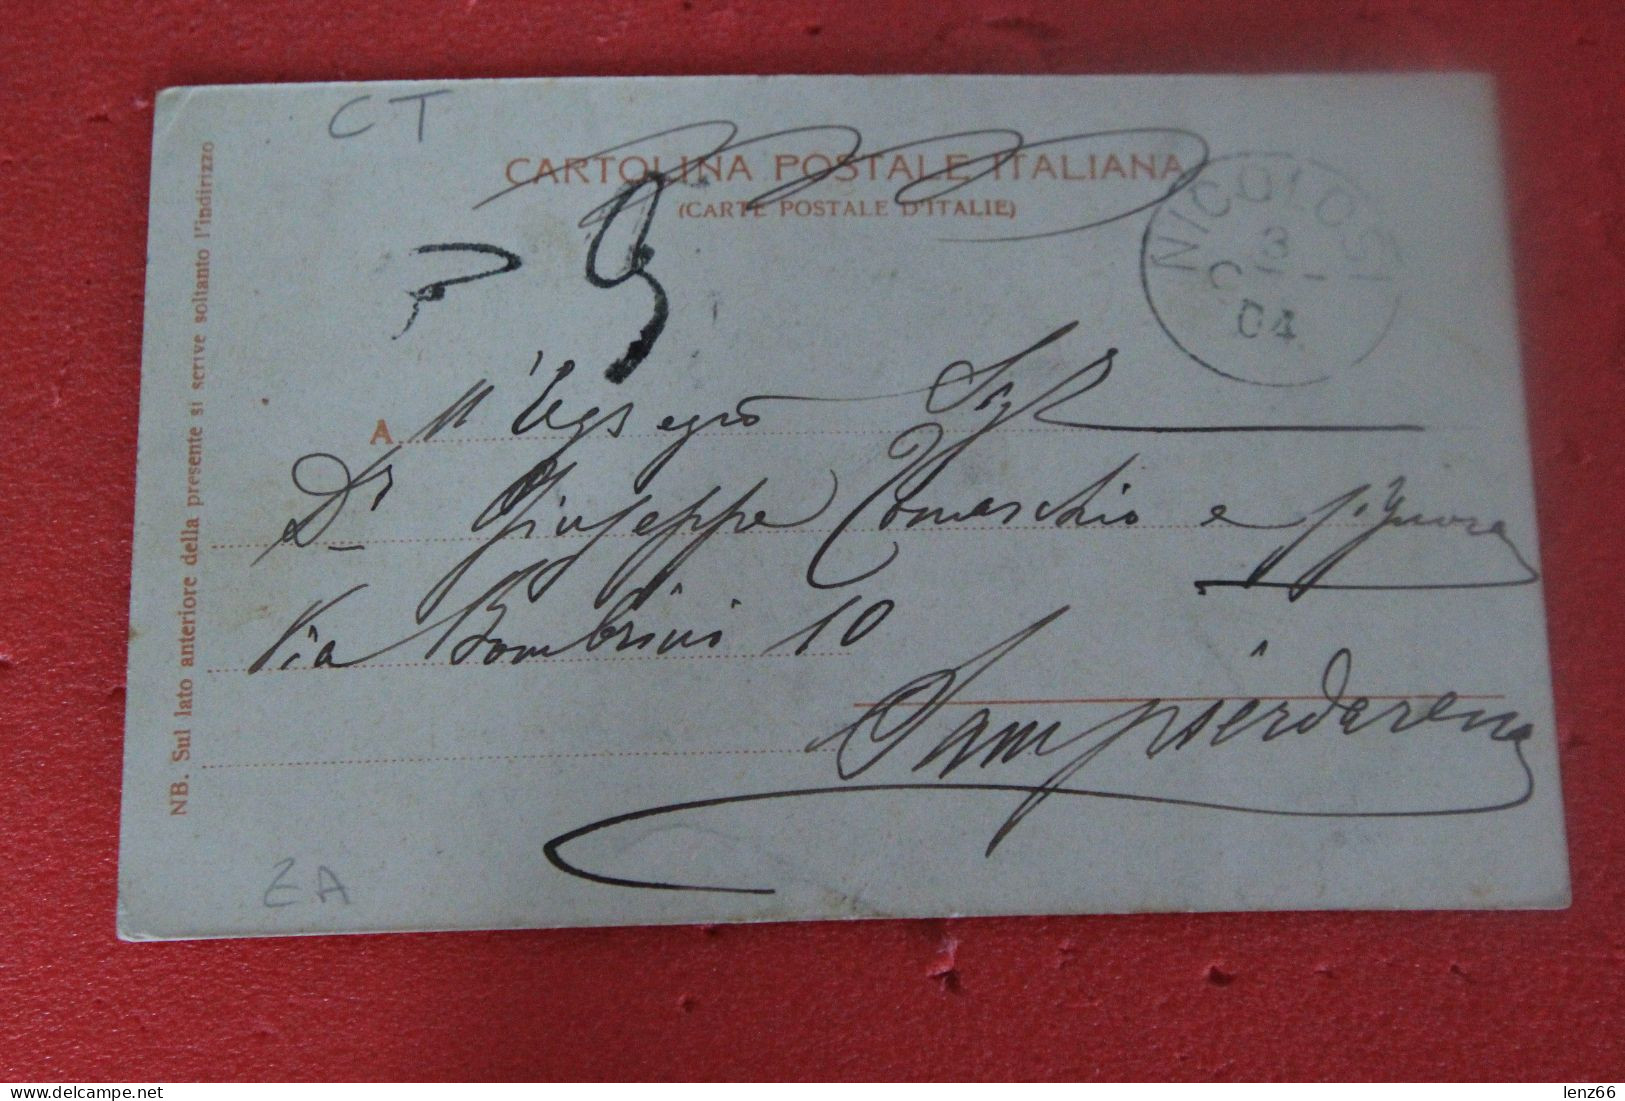 CT
CARTOLINA POSTALE ITALIANA
(CARTE POSTALE D'ITALIE)
NICOLOSI
3
04
A
Dr Giuseppe Tomaschio e Signora
Via Bombrini 10
Sampierdarena
NB. Sul lato anteriore della presente si scrive soltanto l'indirizzo
ZA
lenz66